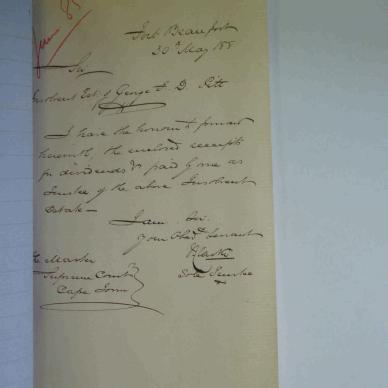 Fort Beaufort
30th May 188
Sir
Insolvent Est. of George F. D. Pitt
I have the honour to forward
herewith, the enclosed receipts
for dividends &c paid by me as
Trustee of the above Insolvent
Estate —
I am Sir
Your Obedt. Servant
Sole Trustee
The Master
Supreme Court
Cape Town